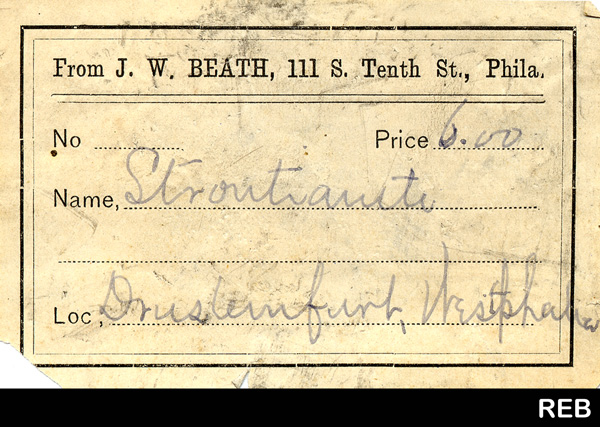 From J. W. BEATH, 111 S. Tenth St., Phila.
No Price 6.00
Name, Strontianite
Loc, Drustemfurt, Westphalia
REB